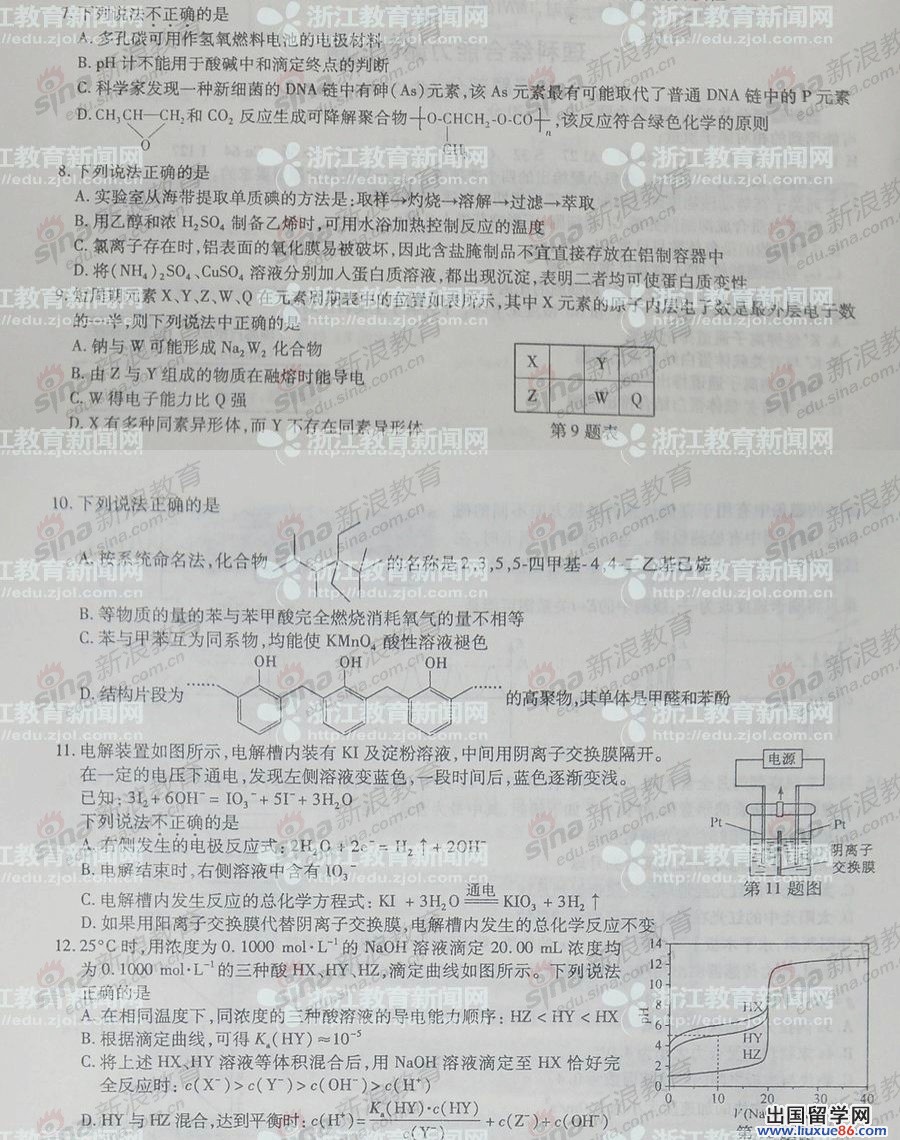 7. 下列说法不正确的是
A. 多孔碳可用作氢氧燃料电池的电极材料
B. pH 计不能用于酸碱中和滴定终点的判断
C. 科学家发现一种新细菌的 DNA 链中有砷(As)元素,该 As 元素最有可能取代了普通 DNA 链中的 P 元素
D. CH₃CH—CH₂和 CO₂ 反应生成可降解聚合物 ⁅O-CHCH₂-O-CO⁆ₙ,该反应符合绿色化学的原则
O CH₃
8. 下列说法正确的是
A. 实验室从海带提取单质碘的方法是:取样→灼烧→溶解→过滤→萃取
B. 用乙醇和浓 H₂SO₄ 制备乙烯时,可用水浴加热控制反应的温度
C. 氯离子存在时,铝表面的氧化膜易被破坏,因此含盐腌制品不宜直接存放在铝制容器中
D. 将(NH₄)₂SO₄、CuSO₄ 溶液分别加入蛋白质溶液,都出现沉淀,表明二者均可使蛋白质变性
9. 短周期元素 X、Y、Z、W、Q 在元素周期表中的位置如表所示,其中 X 元素的原子内层电子数是最外层电子数
的一半,则下列说法中正确的是
A. 钠与 W 可能形成 Na₂W₂ 化合物
B. 由 Z 与 Y 组成的物质在融熔时能导电
C. W 得电子能力比 Q 强
D. X 有多种同素异形体,而 Y 不存在同素异形体
X Y
Z W Q
第 9 题表
10. 下列说法正确的是
A. 按系统命名法,化合物 的名称是 2,3,5,5-四甲基-4,4-二乙基己烷
B. 等物质的量的苯与苯甲酸完全燃烧消耗氧气的量不相等
C. 苯与甲苯互为同系物,均能使 KMnO₄ 酸性溶液褪色
OH OH OH
D. 结构片段为 …… …… 的高聚物,其单体是甲醛和苯酚
11. 电解装置如图所示,电解槽内装有 KI 及淀粉溶液,中间用阴离子交换膜隔开。
在一定的电压下通电,发现左侧溶液变蓝色,一段时间后,蓝色逐渐变浅。
已知: 3I₂ + 6OH⁻ = IO₃⁻ + 5I⁻ + 3H₂O
下列说法不正确的是
A. 右侧发生的电极反应式: 2H₂O + 2e⁻ = H₂↑ + 2OH⁻
B. 电解结束时,右侧溶液中含有 IO₃⁻
C. 电解槽内发生反应的总化学方程式: KI + 3H₂O 通电 KIO₃ + 3H₂↑
D. 如果用阳离子交换膜代替阴离子交换膜,电解槽内发生的总化学反应不变
电源
Pt Pt
阴离子
交换膜
第 11 题图
12. 25°C 时,用浓度为 0.1000 mol·L⁻¹ 的 NaOH 溶液滴定 20.00 mL 浓度均
为 0.1000 mol·L⁻¹ 的三种酸 HX、HY、HZ,滴定曲线如图所示。下列说法
正确的是
A. 在相同温度下,同浓度的三种酸溶液的导电能力顺序: HZ < HY < HX
B. 根据滴定曲线,可得 Kₐ(HY) ≈ 10⁻⁵
C. 将上述 HX、HY 溶液等体积混合后,用 NaOH 溶液滴定至 HX 恰好完
全反应时: c(X⁻) > c(Y⁻) > c(OH⁻) > c(H⁺)
D. HY 与 HZ 混合,达到平衡时: c(H⁺) = Kₐ(HY)·c(HY) / c(Y⁻) + c(Z⁻) + c(OH⁻)
14
12
10
8
6
4
2
0
pH
HX
HY
HZ
0 10 20 30 40
V(Na
第
浙江教育新闻网
http://edu.zjol.com.cn
sina 新浪教育
edu.sina.com.cn
出国留学网
www.liuxue86.com